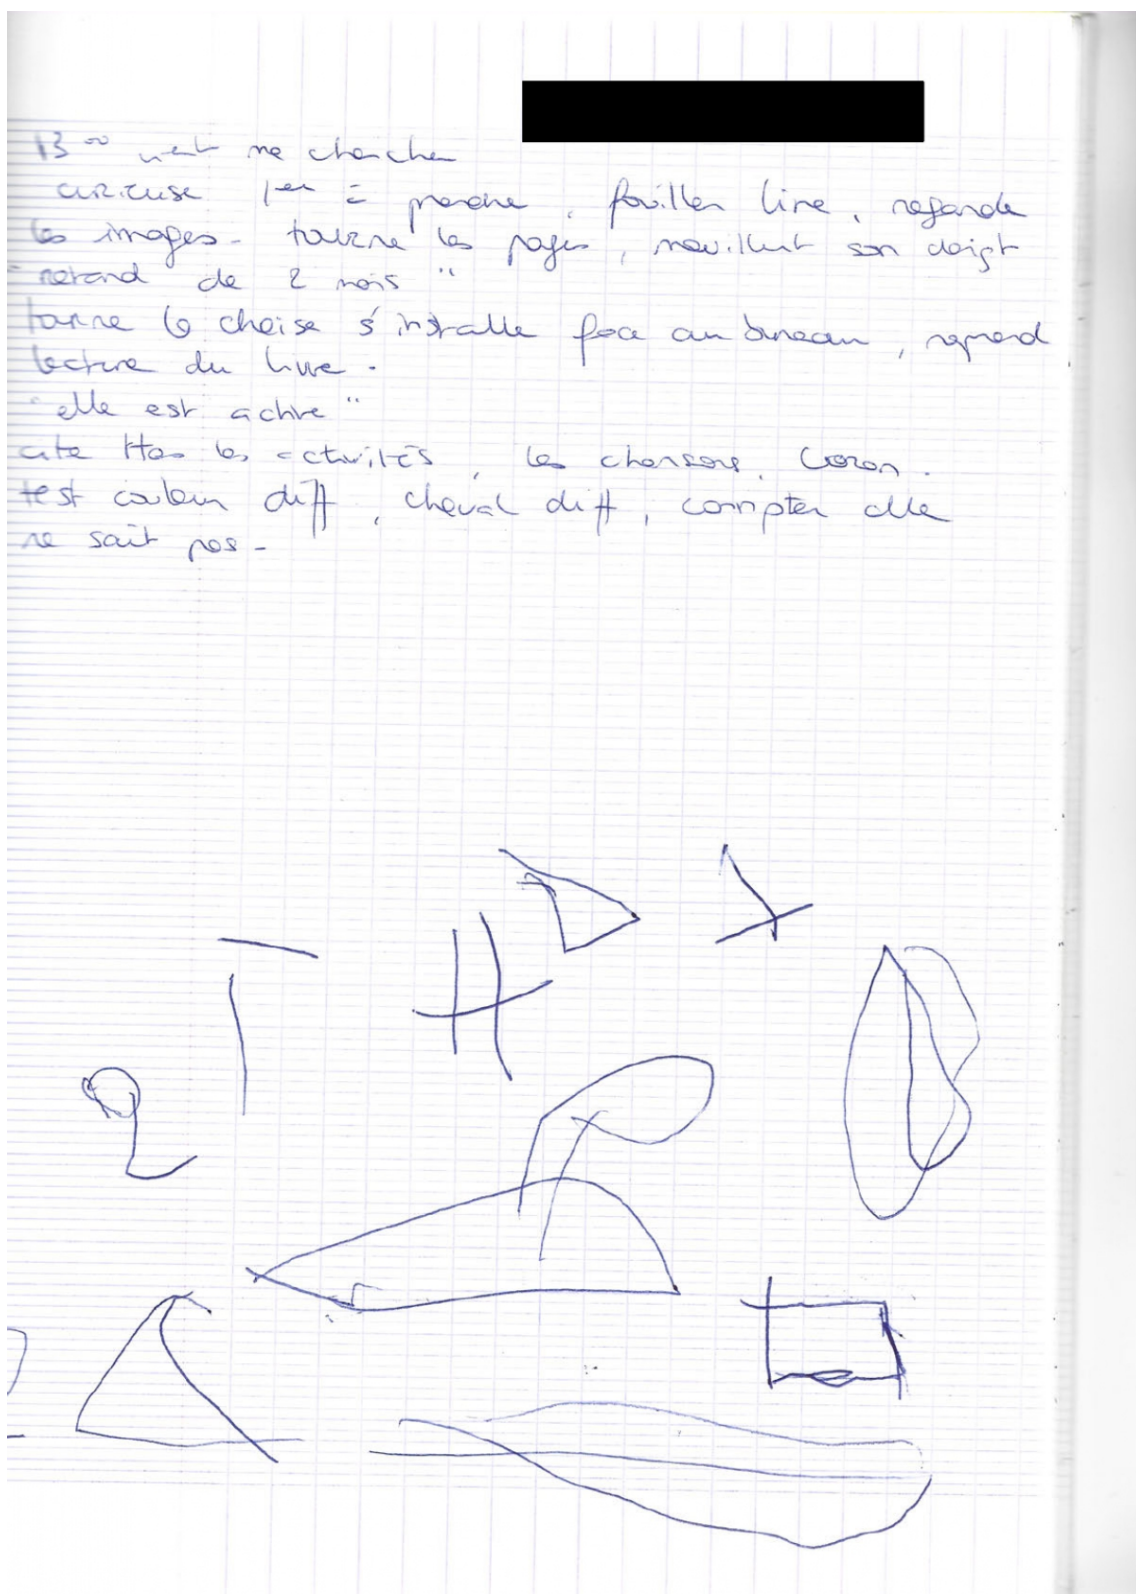 13 00 vient me chercher
curieuse 1er à prendre, fouiller livre, regarde
les images - tourne les pages, mouillant son doigt
"retard de 2 mois"
tourne la chaise s'installe face au bureau, reprend
lecture du livre.
"elle est active"
cite ttes les activités, les chansons, Coran.
test couleur diff, cheval diff, compter elle
ne sait pas -